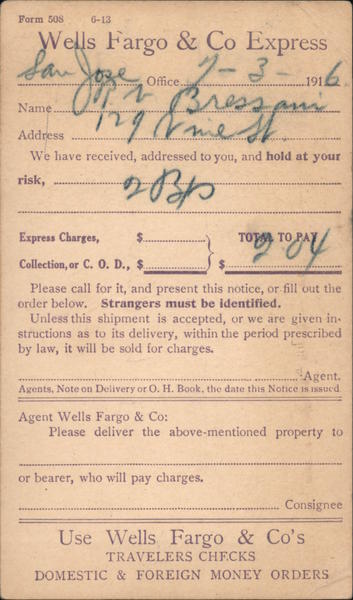 Form 508 6-13
Wells Fargo & Co Express
San Jose Office 7-3-1916
Name P. V. Bressani
Address 129 Vine St.
We have received, addressed to you, and hold at your
risk, 2 Bxs
Express Charges, $ TOTAL TO PAY
Collection, or C. O. D., $ $ 2 04
Please call for it, and present this notice, or fill out the
order below. Strangers must be identified.
Unless this shipment is accepted, or we are given in-
structions as to its delivery, within the period prescribed
by law, it will be sold for charges.
Agent.
Agents, Note on Delivery or O. H. Book, the date this Notice is issued
Agent Wells Fargo & Co:
Please deliver the above-mentioned property to
or bearer, who will pay charges.
Consignee
Use Wells Fargo & Co's
TRAVELERS CHECKS
DOMESTIC & FOREIGN MONEY ORDERS